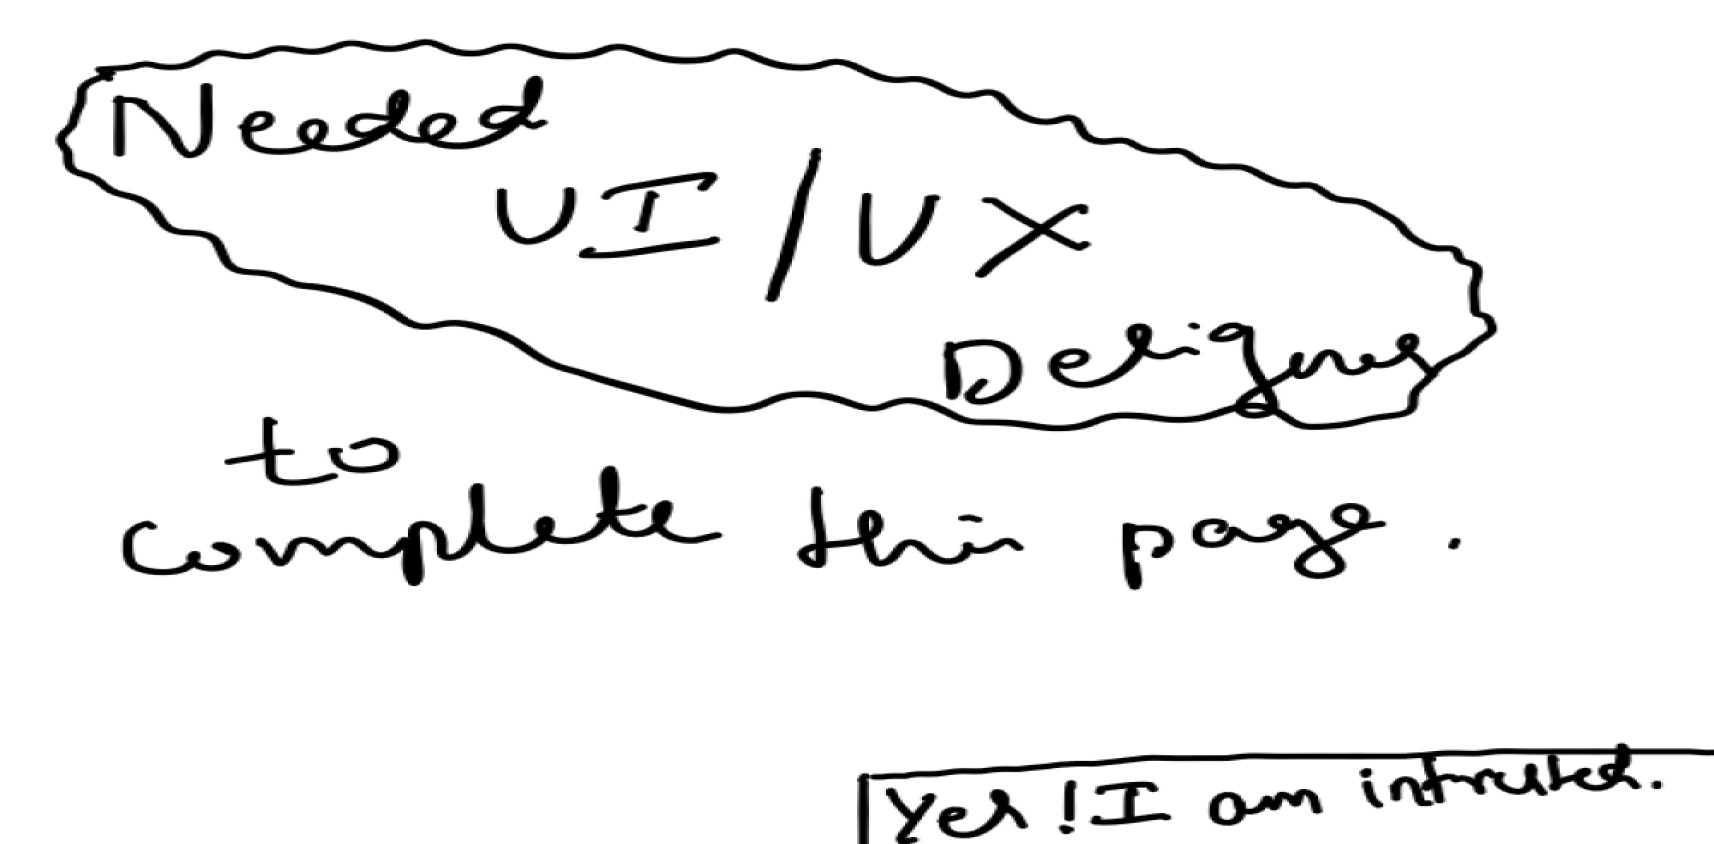 Needed
UI/UX
Designer
to
complete this page.
Yes! I am intrusted.